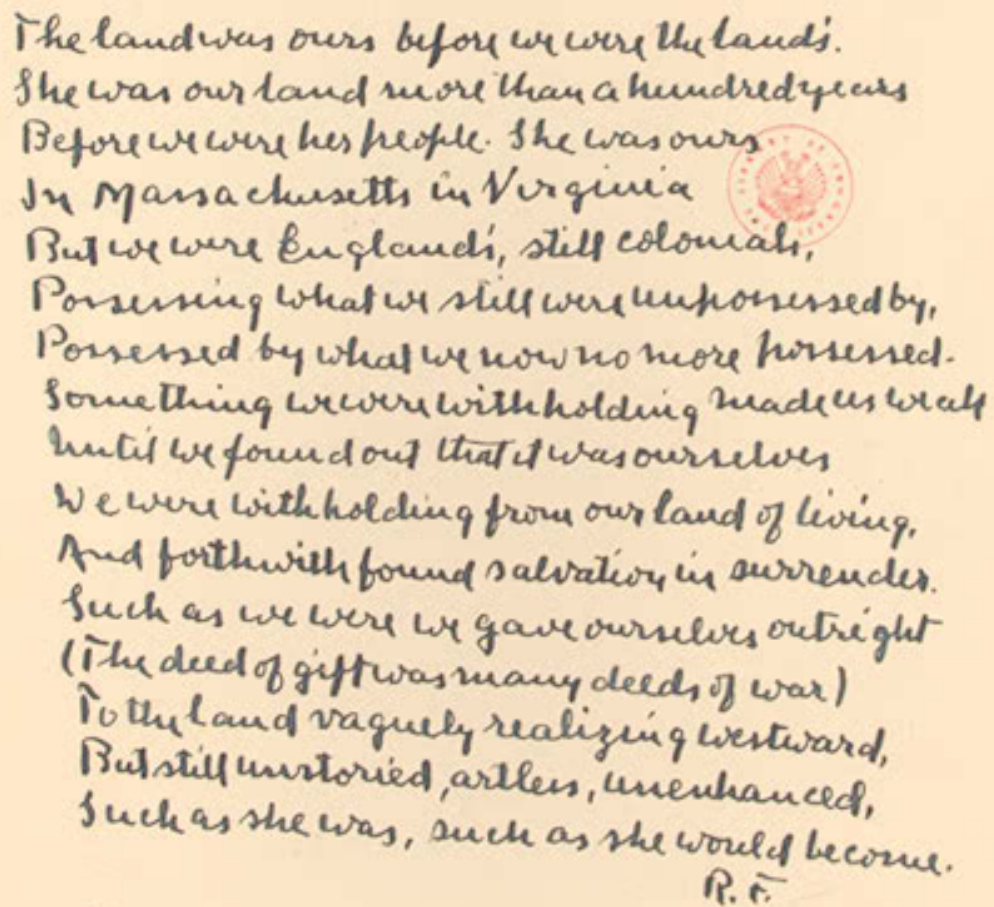 The land was ours before we were the land's.
She was our land more than a hundred years
Before we were her people. She was ours
In Massachusetts in Virginia
But we were England's, still colonials,
Possessing what we still were unpossessed by,
Possessed by what we now no more possessed.
Something we were withholding made us weak
Until we found out that it was ourselves
We were withholding from our land of living,
And forthwith found salvation in surrender.
Such as we were we gave ourselves outright
(The deed of gift was many deeds of war)
To the land vaguely realizing westward,
But still unstoried, artless, unenhanced,
Such as she was, such as she would become.
R. F.